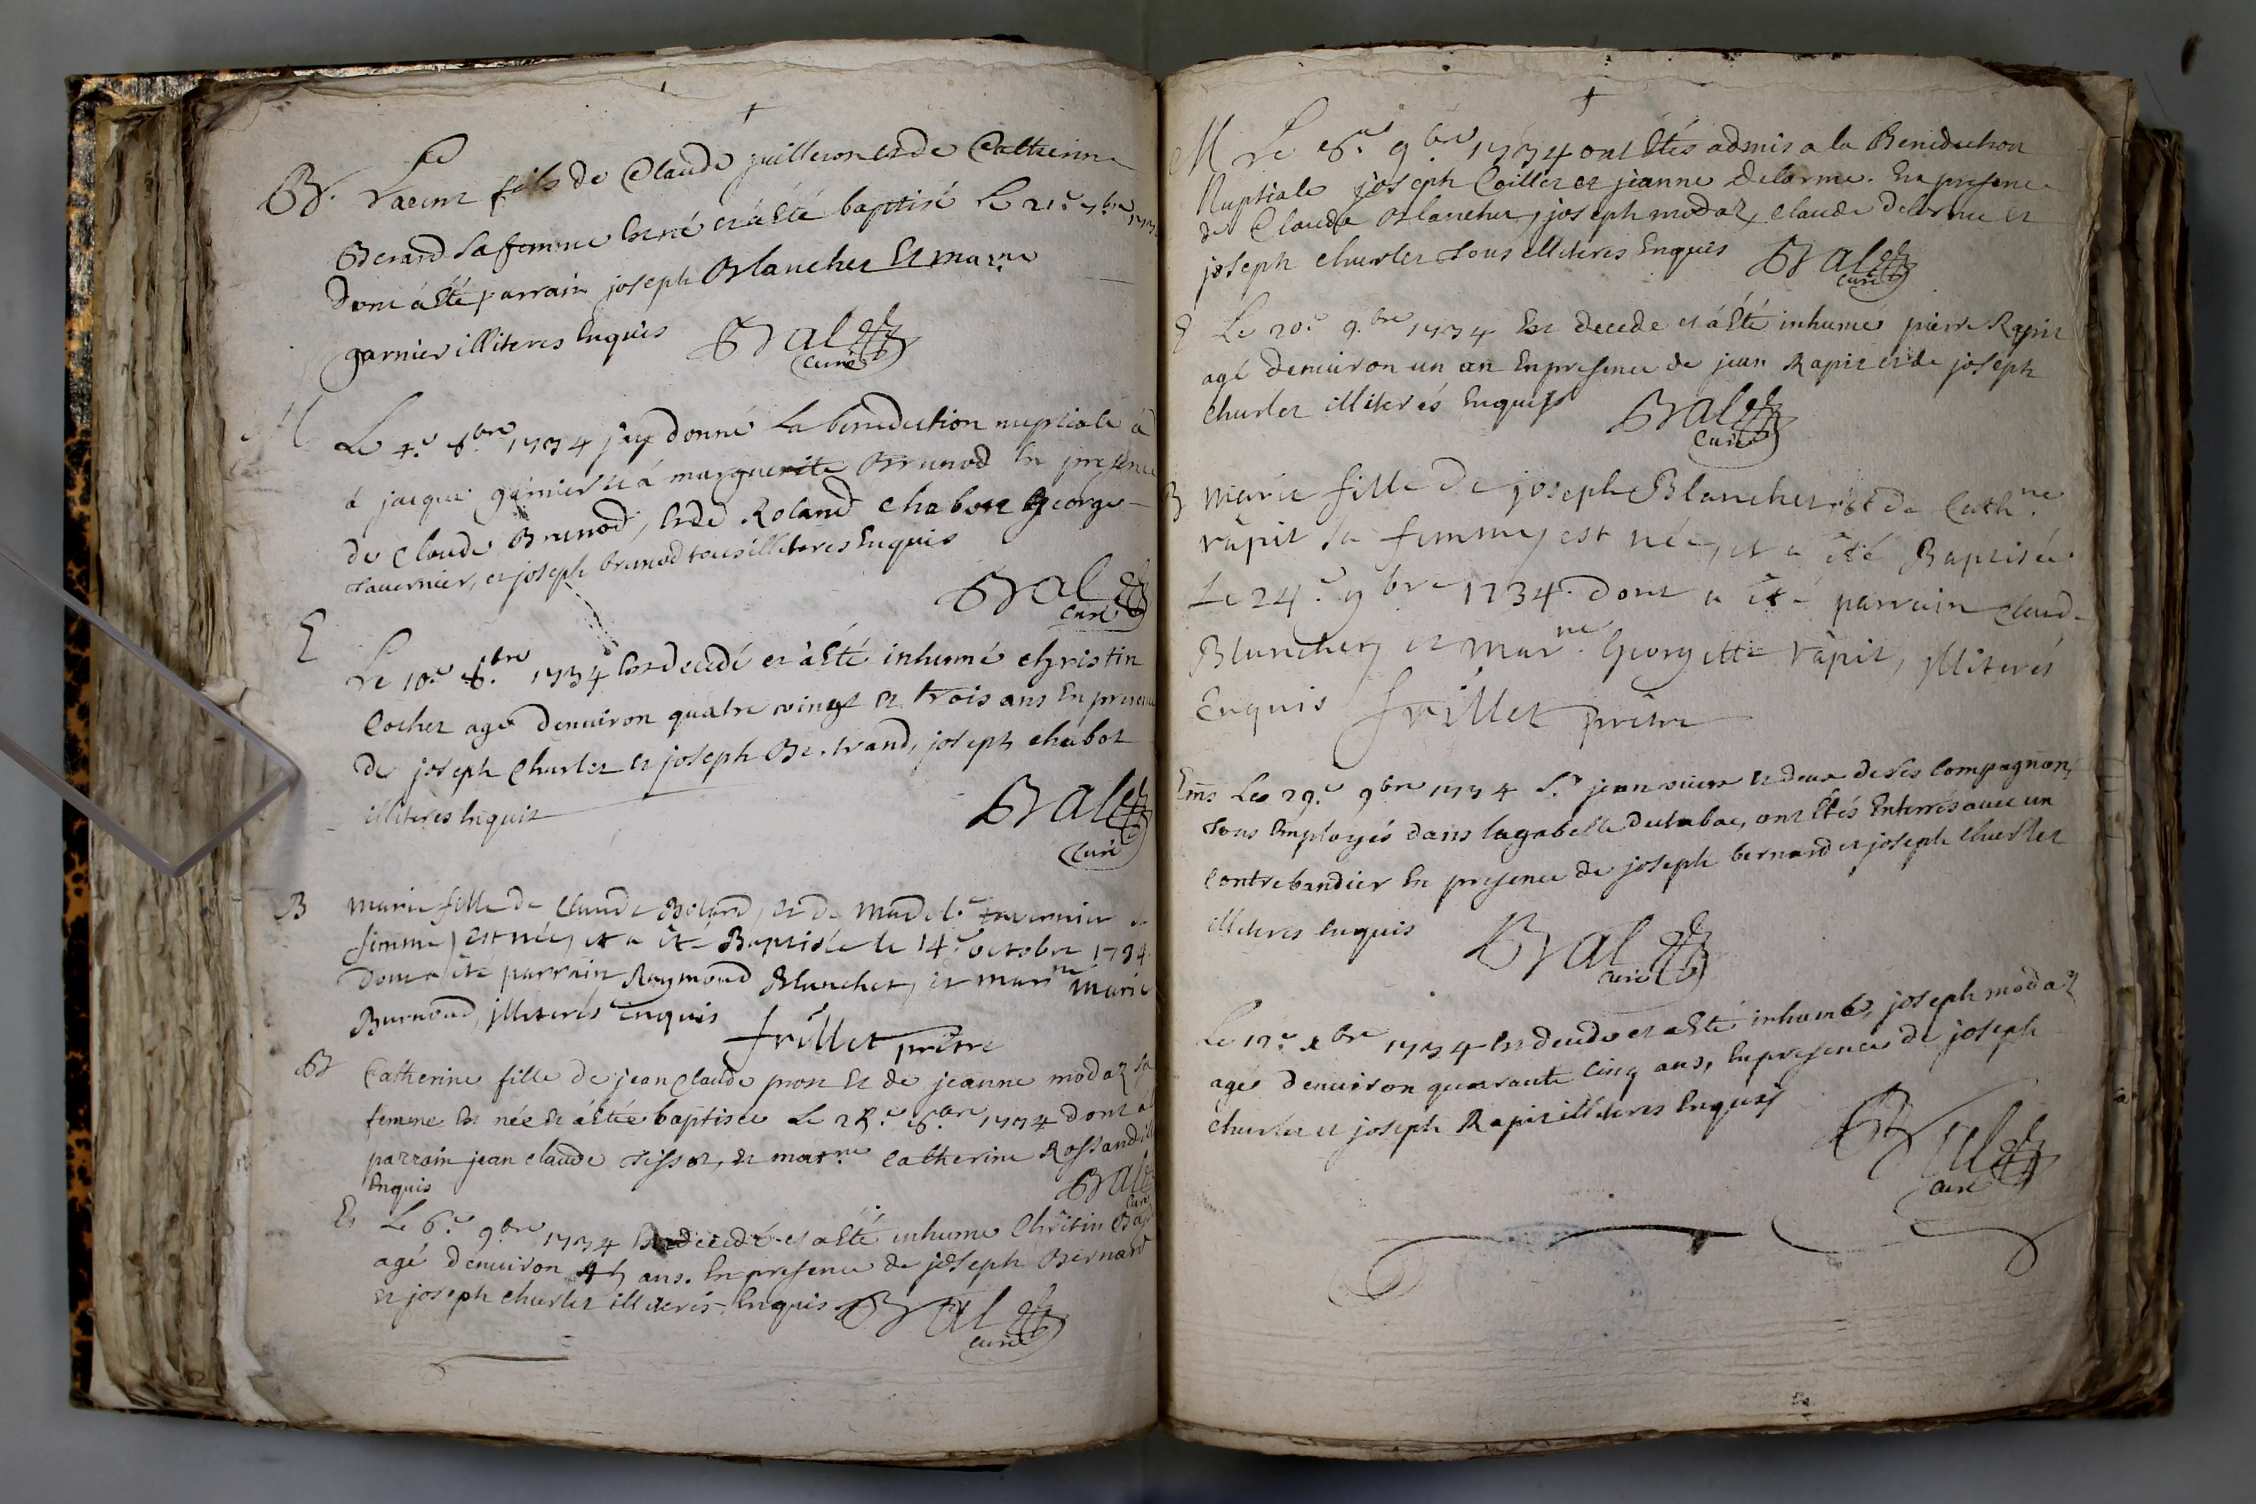 B. Vincent fils de Claude juilleron et de Catherine
Berard sa femme est né et à Eté baptisé Le 21.e 7.bre 1734
dont à Eté parrain joseph Blanchet Et mar.ne
garnier illiteres Enquis Bral
Curé
M Le 4.e 8.bre 1734 j'ay donné La benediction nuptiale à
à jacque garnier et à marguerite Brunod En presence
de Claude Brunod, et de Roland Chabot George
Tavernier, et joseph brunod tous illiteres Enquis
Bral
Curé
E Le 10.e 8.bre 1734 Est decedé et à Eté inhumé christin
Cochet agé denuiron quatre vingt et trois ans En presence
de joseph Churlet et joseph Bertrand, joseph chabot
illiteres Enquis
Bral
Curé
B marie fille de Claude Bolard, et de Madel.e tavernier sa
femme, est née, et a été Baptisée le 14.e octobre 1734
dont a été parrain Raymond Blanchet, et mar.ne marie
Burnoud, illiterés Enquis
frillet prêtre
B Catherine fille de jean Claude pron Et de jeanne modaz sa
femme Est née et à Etée baptisée Le 28.e 8.bre 1734 dont a
parrain jean claude Tissot, et mar.ne Catherine Rossand ill
Enquis
Bral
Curé
E Le 6.e 9.bre 1734 Est decedé et a Eté inhume Christin
agé denuiron ans. En presence de joseph Bernard
et joseph churlet illiterés Enquis Bral
Curé
M Le 9.bre 1734 ont Etés admis a la Benediction
Nuptiale joseph Coillet et jeanne delorme. En presence
de Claude Blanchet, joseph modaz, Claude delorme et
joseph churlet Tous illiteres Enquis Bral
Curé
E Le 20.e 9.bre 1734 Est decede et à Eté inhumé pierre Rapit
agé denuiron un an En presence de jean Rapit et de joseph
churlet illiterés Enquis Bral
Curé
B Marie fille de joseph Blanchet, et de Cath.ne
rapit sa femme, est née, et a été Baptisée
Le 24.e 9bre 1734. dont a été parrain claude
Blanchet, et mar.ne Georgette rapit, illiterés
Enquis frillet prêtre
Les 29.e 9bre 1734 S.r jean et deux de ses Compagnons
Tous Employés dans la gabelle du tabac, ont Etés Enterrés avec un
Contrebandier En presence de joseph bernard et joseph Churlet
illiteres Enquis Bral
Curé
Le 12.e xbre 1734 Est decede et a Eté inhumé, joseph modaz
agé denuiron quarante Cinq ans, En presence de joseph
Churlet et joseph Rapit illiteres Enquis
Bral
Curé